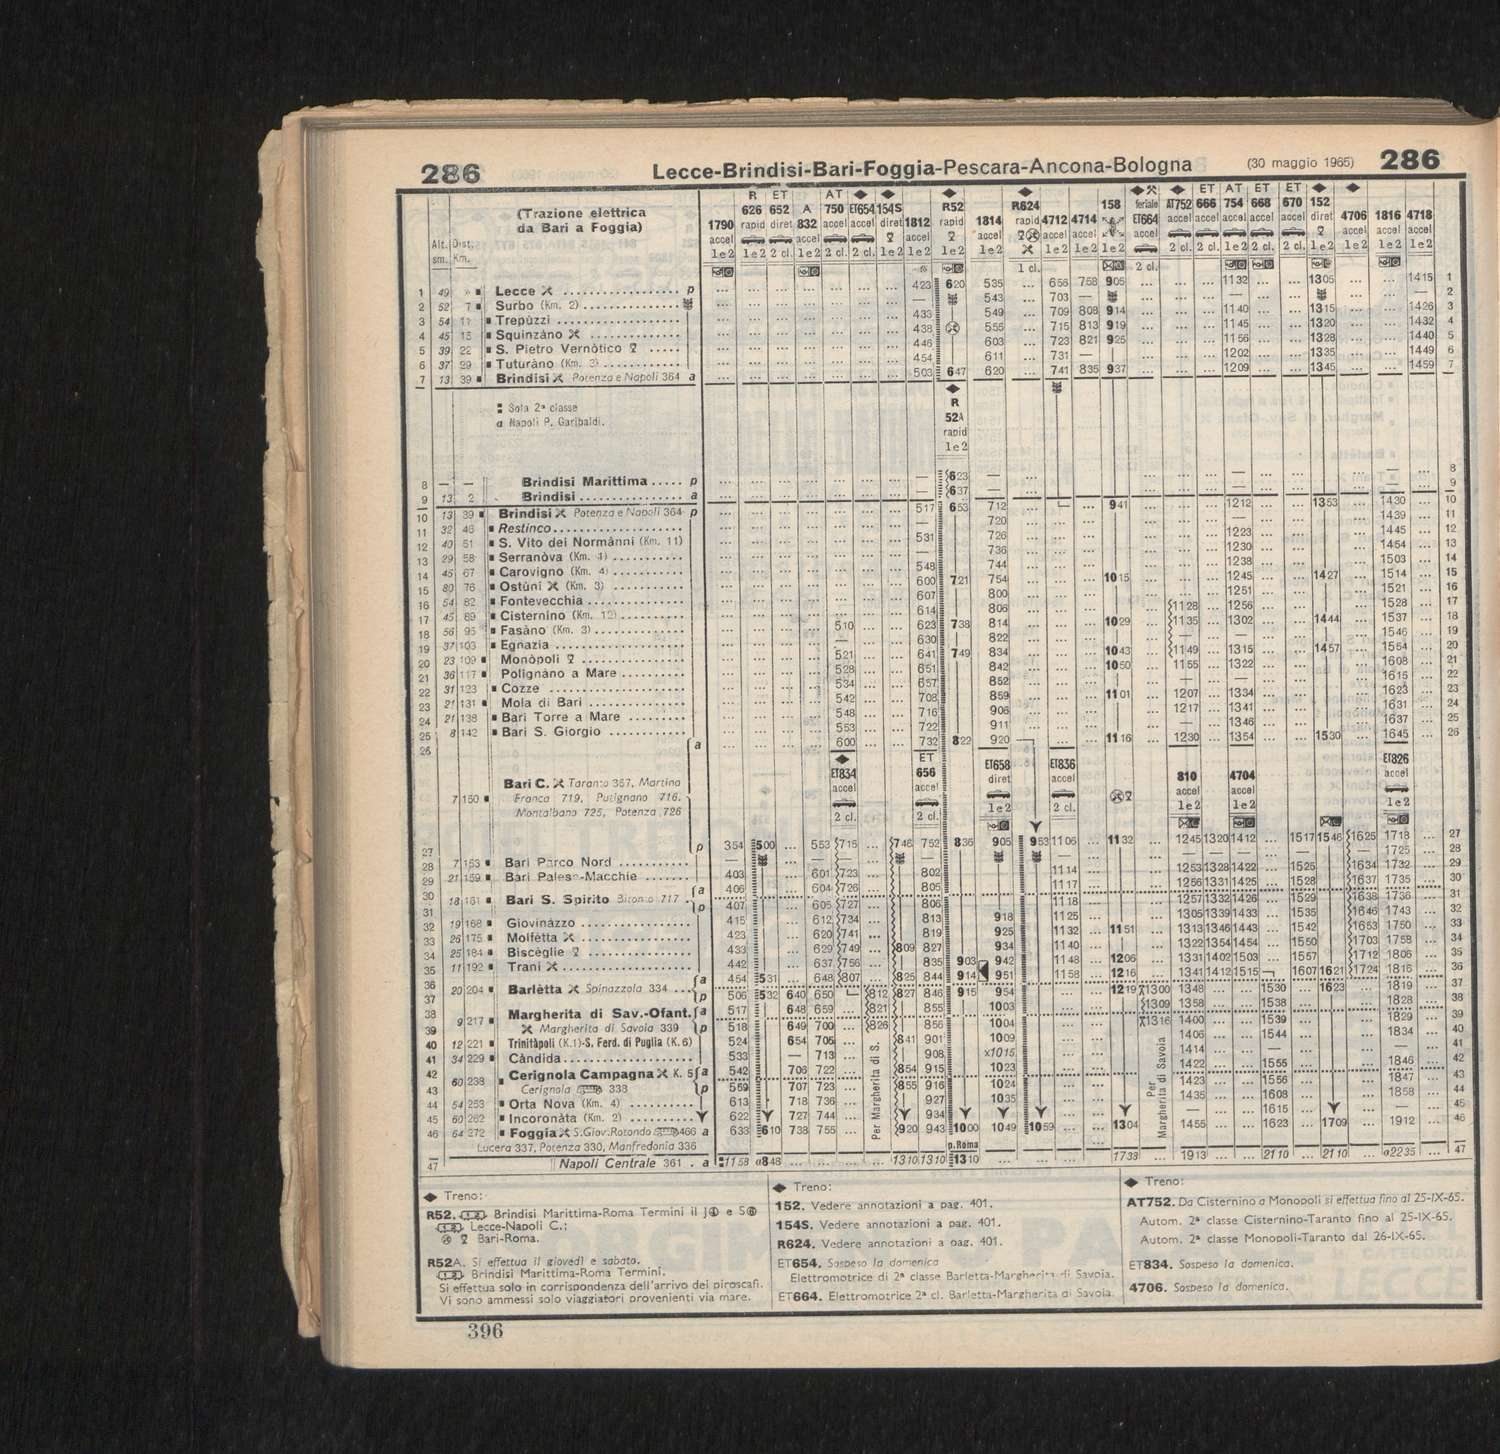 286 Lecce-Brindisi-Bari-Foggia-Pescara-Ancona-Bologna (30 maggio 1965) 286
(Trazione elettrica
da Bari a Foggia)
Alt. Dist.
sm. Km.
1790 R 626 ET 652 A 832 AT 750 ET654 154S 1812 R52 1814 R624 4712 4714 158 feriale ET664 AT752 ET 666 AT 754 ET 668 ET 670 152 4706 1816 4718
accel rapid diret accel accel accel diret accel rapid accel rapid accel accel accel accel accel accel accel accel diret accel accel accel
1 49 Lecce p 423 620 535 656 758 905 1132 1305 1415 1
2 52 7 Surbo (Km. 2) 543 703 2
3 54 11 Trepùzzi 433 549 709 808 914 1140 1315 1426 3
4 45 15 Squinzàno 438 555 715 813 919 1145 1320 1432 4
5 39 22 S. Pietro Vernòtico 446 603 723 821 925 1156 1328 1440 5
6 37 29 Tuturàno (Km. 3) 454 611 731 1202 1335 1449 6
7 13 39 Brindisi Potenza e Napoli 364 a 503 647 620 741 835 937 1209 1345 1459 7
Sola 2ª classe
a Napoli P. Garibaldi.
R
52A
rapid
1e2
8 Brindisi Marittima p 623 8
9 13 2 Brindisi a 637 9
10 13 39 Brindisi Potenza e Napoli 364 p 517 653 712 941 1212 1353 1430 10
11 32 46 Restinco 720 1439 11
12 40 51 S. Vito dei Normànni (Km. 11) 531 726 1223 1445 12
13 29 58 Serranòva (Km. 4) 736 1230 1454 13
14 45 67 Carovigno (Km. 4) 548 744 1238 1503 14
15 80 76 Ostúni (Km. 3) 600 721 754 1015 1245 1427 1514 15
16 54 82 Fontevecchia 607 800 1251 1521 16
17 45 89 Cisternino (Km. 12) 614 806 1128 1256 1528 17
18 56 95 Fasàno (Km. 3) 510 623 738 814 1029 1135 1302 1444 1537 18
19 37 103 Egnazia 630 822 1546 19
20 23 109 Monòpoli 521 641 749 834 1043 1149 1315 1457 1554 20
21 36 117 Polignàno a Mare 528 651 842 1050 1155 1322 1608 21
22 31 123 Cozze 534 657 852 1615 22
23 21 131 Mola di Bari 542 708 859 1101 1207 1334 1623 23
24 21 138 Bari Torre a Mare 548 716 906 1217 1341 1631 24
25 8 142 Bari S. Giorgio 553 722 911 1346 1637 25
26 a 600 732 822 920 1116 1230 1354 1530 1645 26
Bari C. Taranto 367, Martina
7 150 Franca 719, Putignano 716.
Montalbano 725, Potenza 726
ET834 accel 2 cl.
ET 656 accel 2 cl.
ET658 diret 1e2
ET836 accel 2 cl.
810 accel 1e2
4704 accel 1e2
ET826 accel 1e2
27 p 354 500 553 715 746 752 836 905 953 1106 1132 1245 1320 1412 1517 1546 1625 1718 27
28 7 153 Bari Parco Nord 1725 28
29 21 159 Bari Palese-Macchie 403 601 723 802 1114 1253 1328 1422 1525 1634 1732 29
30 a 406 604 726 805 1117 1256 1331 1425 1528 1637 1735 30
18 161 Bari S. Spirito Bitonto 717
31 p 407 605 727 806 1118 1257 1332 1426 1529 1638 1736 31
32 19 168 Giovinàzzo 415 612 734 813 918 1125 1305 1339 1433 1535 1646 1743 32
33 26 175 Molfètta 423 620 741 819 925 1132 1151 1313 1346 1443 1542 1653 1750 33
34 25 184 Biscèglie 433 629 749 809 827 934 1140 1322 1354 1454 1550 1703 1758 34
35 11 192 Trani 442 637 756 835 903 942 1148 1206 1331 1402 1503 1557 1712 1806 35
36 a 454 531 648 807 825 844 914 951 1158 1216 1341 1412 1515 1607 1621 1724 1816 36
20 204 Barlètta Spinazzola 334
37 p 506 532 640 650 812 827 846 915 954 1219 1300 1348 1530 1623 1819 37
38 Margherita di Sav.-Ofant. a 517 648 659 821 855 1003 1309 1358 1538 1828 38
39 9 217 Margherita di Savoia 339 p 518 649 700 826 856 1004 1316 1400 1539 1829 39
40 12 221 Trinitàpoli (K.1)-S. Ferd. di Puglia (K. 6) 524 654 705 841 901 1009 1406 1544 1834 40
41 34 229 Càndida 533 713 908 x1015 1414 41
42 Cerignola Campagna K. 5 a 542 706 722 854 915 1023 1422 1555 1846 42
60 238
43 Cerignola 338 p 559 707 723 855 916 1024 1423 1556 1847 43
44 54 253 Orta Nova (Km. 4) 613 718 736 927 1035 1435 1608 1858 44
45 60 262 Incoronàta (Km. 2) 622 727 744 934 1615 45
46 64 272 Foggia S.Giov.Rotondo 466 a 633 610 738 755 920 943 1000 1049 1059 1304 1455 1623 1709 1912 46
Lucera 337, Potenza 330, Manfredonia 336
p.Roma
47 Napoli Centrale 361 a 1158 a848 1310 1310 1310 1733 1913 2110 2110 a2235 47
Per Margherita di S.
Per Margherita di Savoia
Treno:
R52. Brindisi Marittima-Roma Termini il
Lecce-Napoli C.;
Bari-Roma.
R52A. Si effettua il giovedì e sabato.
Brindisi Marittima-Roma Termini.
Si effettua solo in corrispondenza dell'arrivo dei piroscafi.
Vi sono ammessi solo viaggiatori provenienti via mare.
Treno:
152. Vedere annotazioni a pag. 401.
154S. Vedere annotazioni a pag. 401.
R624. Vedere annotazioni a pag. 401.
ET654. Sospeso la domenica
Elettromotrice di 2ª classe Barletta-Margherita di Savoia.
ET664. Elettromotrice 2ª cl. Barletta-Margherita di Savoia.
Treno:
AT752. Da Cisternino a Monopoli si effettua fino al 25-IX-65.
Autom. 2ª classe Cisternino-Taranto fino al 25-IX-65.
Autom. 2ª classe Monopoli-Taranto dal 26-IX-65.
ET834. Sospeso la domenica.
4706. Sospeso la domenica.
396